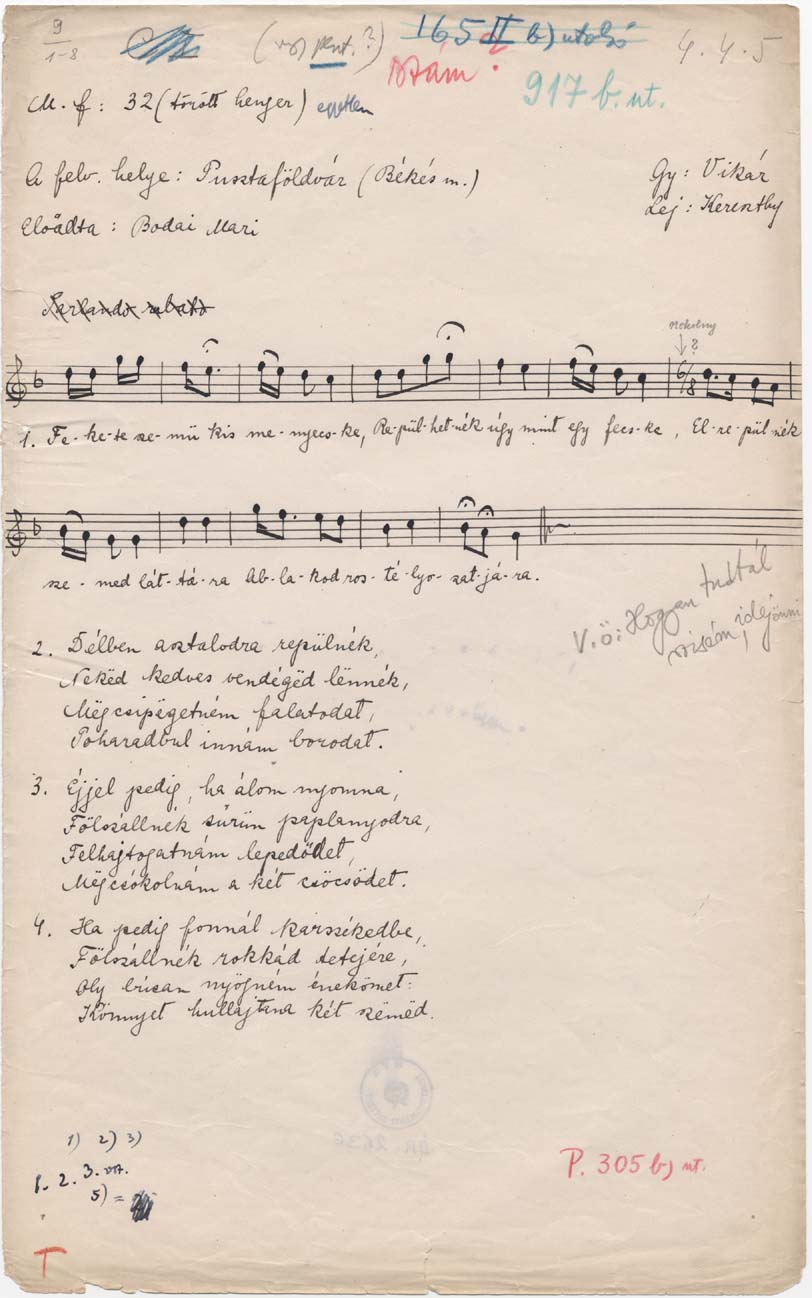 9
1-8
(vsz pent.?)
165 II b) utolsó
szám?
4. 4. 5
917 b. ut.
M. f: 32 (törött henger) egyetlen
A felv. helye: Pusztaföldvár (Békés m.)
Gy: Vikár
Előadta: Bodai Mari
Lej: Kereszthy
Parlando rubato
?
6/8
1. Fe-ke-te sze-mü kis me-nyecs-ke, Re-pül-het-nék úgy mint egy fecs-ke, El-re-pül-nék
sze-med lát-tá-ra Ab-la-kod ros-té-lyo-zat-já-ra.
V.ö: Hogyan tudtál
rózsám, idejönni
2. Délben asztalodra repülnék,
Nekëd kedves vendégëd lënnék,
Mëgcsipëgetném falatodat,
Poharadbul innám borodat.
3. Éjjel pedig, ha álom nyomna,
Fölszállnék sürün paplanyodra,
Felhajtogatnám lepedődet,
Mëgcsókolnám a két csöcsödet.
4. Ha pedig fonnál karszékedbe,
Fölszállnék rokkád tetejére,
Oly búsan nyögném énekömet:
Könnyet hullajtana két szëmëd.
1) 2) 3)
1. 2. 3. vsz.
5) =
P. 305 b) ut.
T